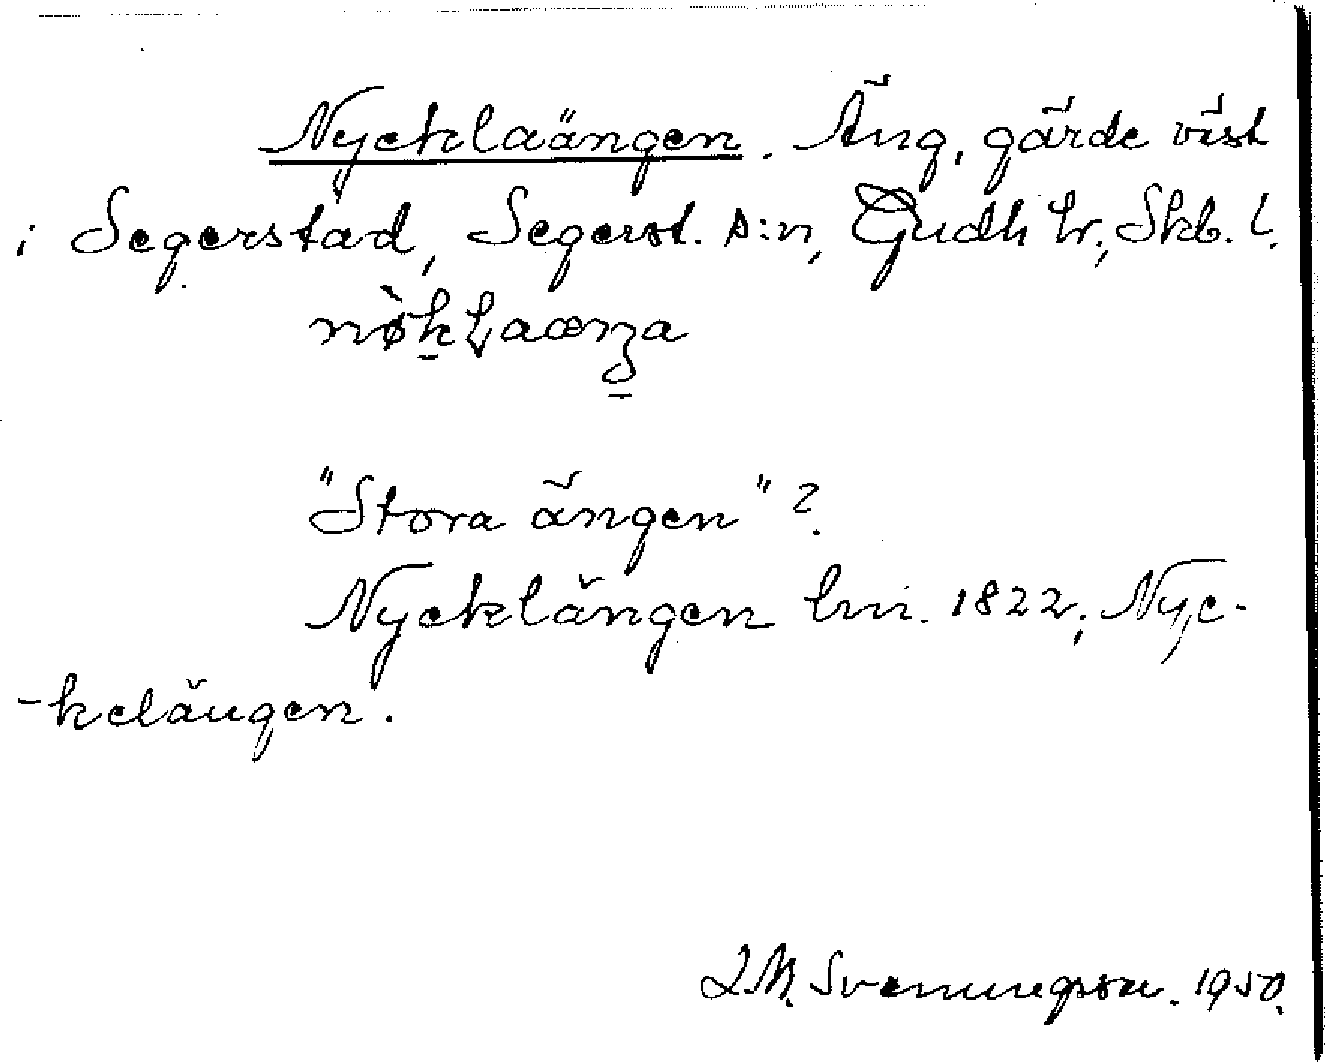 Nycklaängen. Äng, gärde väst
i Segerstad, Segerst. s:n, Gudh hr, Skb. l.
"Stora ängen"?
Nycklängen lm. 1822; Nyc-
-kelängen.
J.M. Svenungsson. 1950.